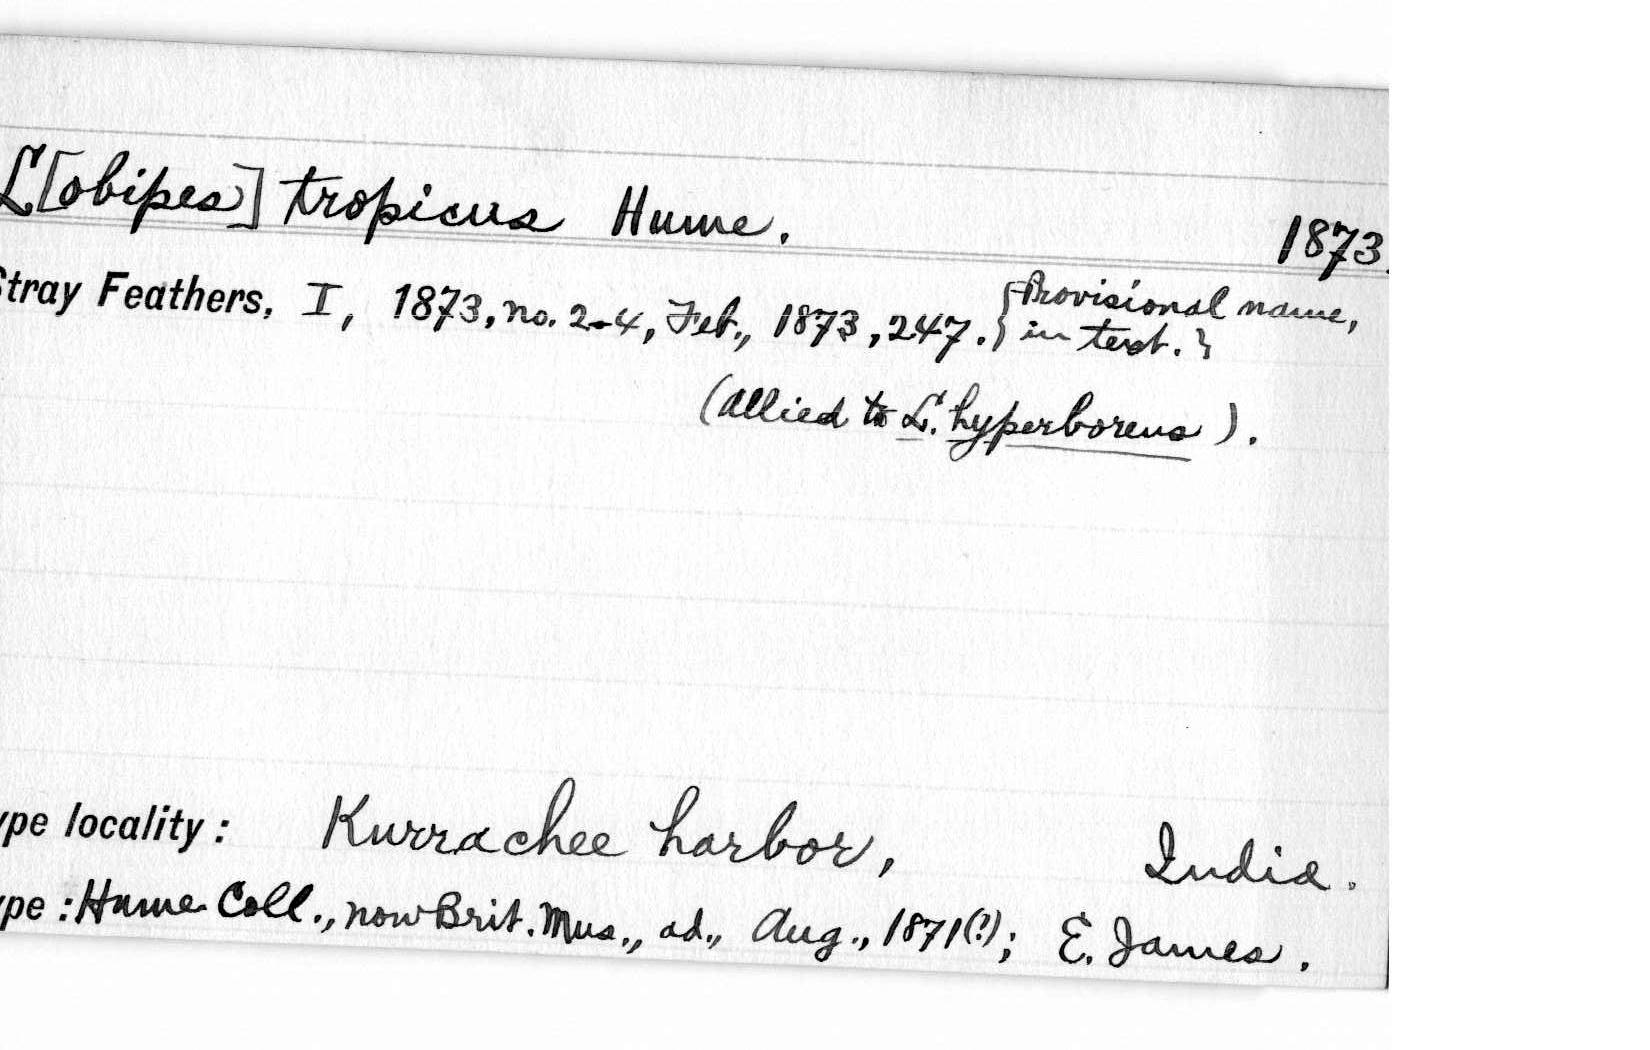 L[obipes] tropicus Hume. 1873.
Stray Feathers, I, 1873, no. 2-4, Feb., 1873, 247. {Provisional name,
in text.}
(allied to L. hyperboreus).
ype locality: Kurrachee harbor, India.
ype: Hume Coll., now Brit. Mus., ad., Aug., 1871(?); E. James.